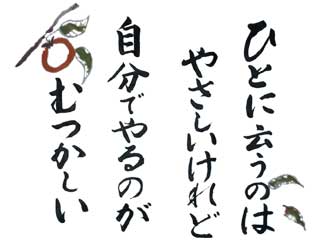 ひとに云うのは
やさしいけれど
自分でやるのが
むつかしい